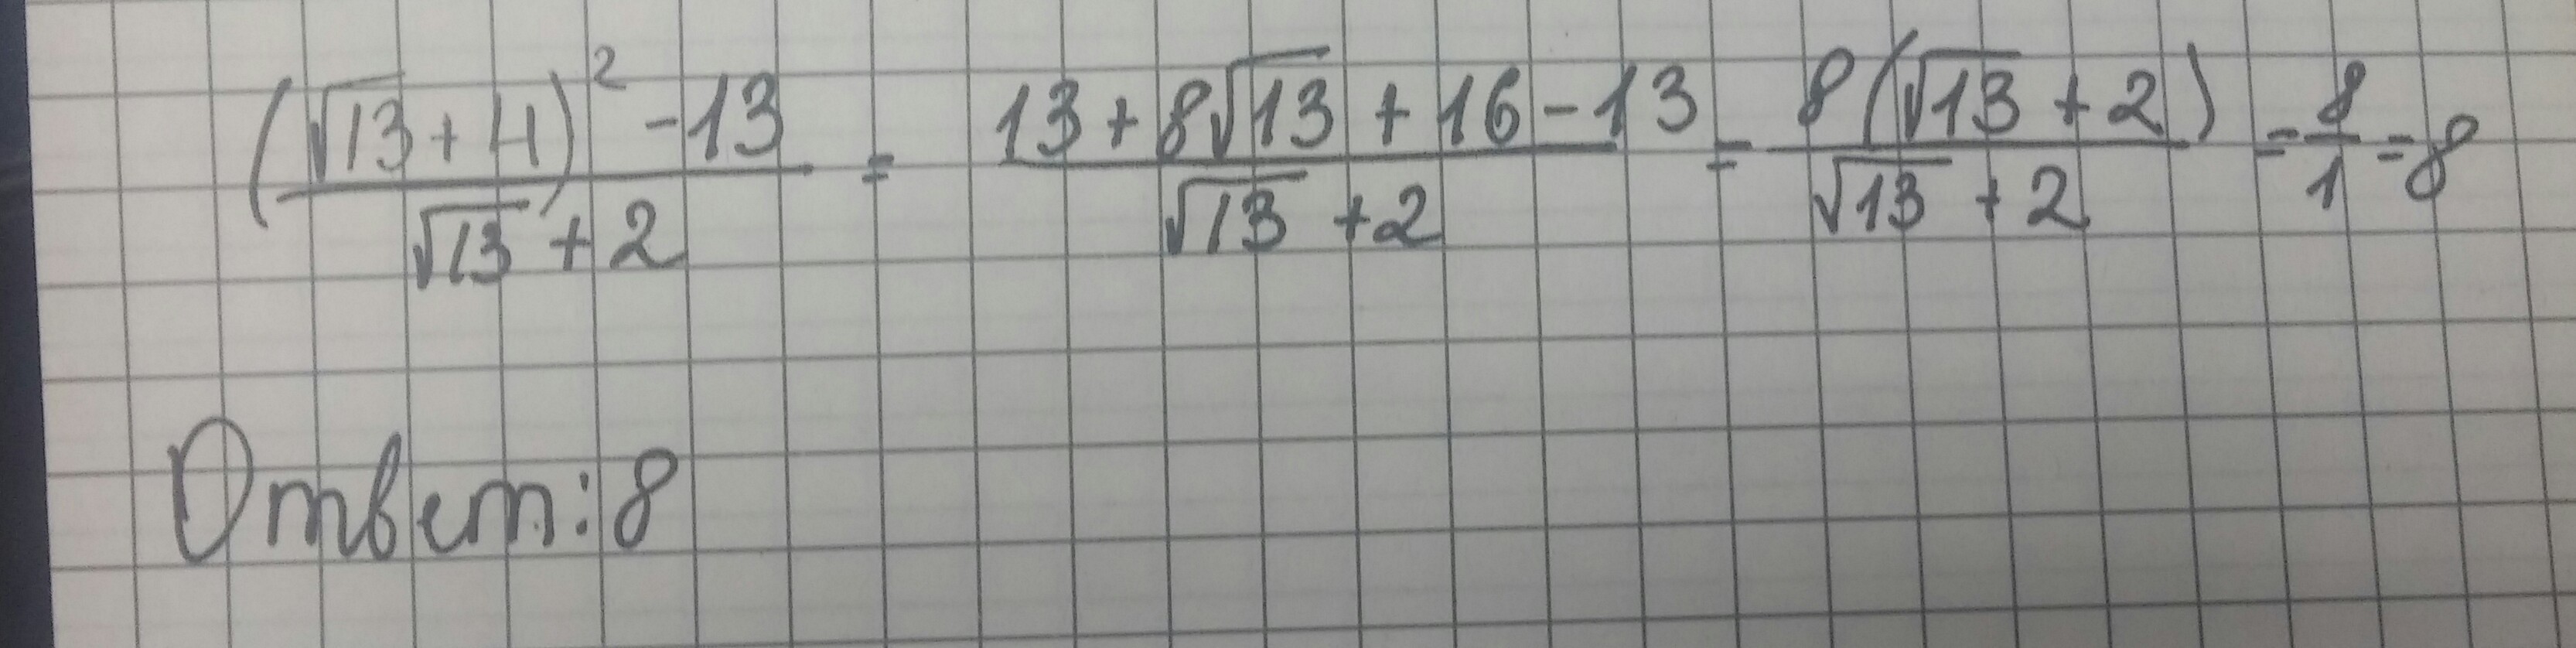 ((√13 + 4)² - 13)/(√13 + 2) = (13 + 8√13 + 16 - 13)/(√13 + 2) = 8(√13 + 2)/(√13 + 2) = 8/1 = 8
Ответ: 8